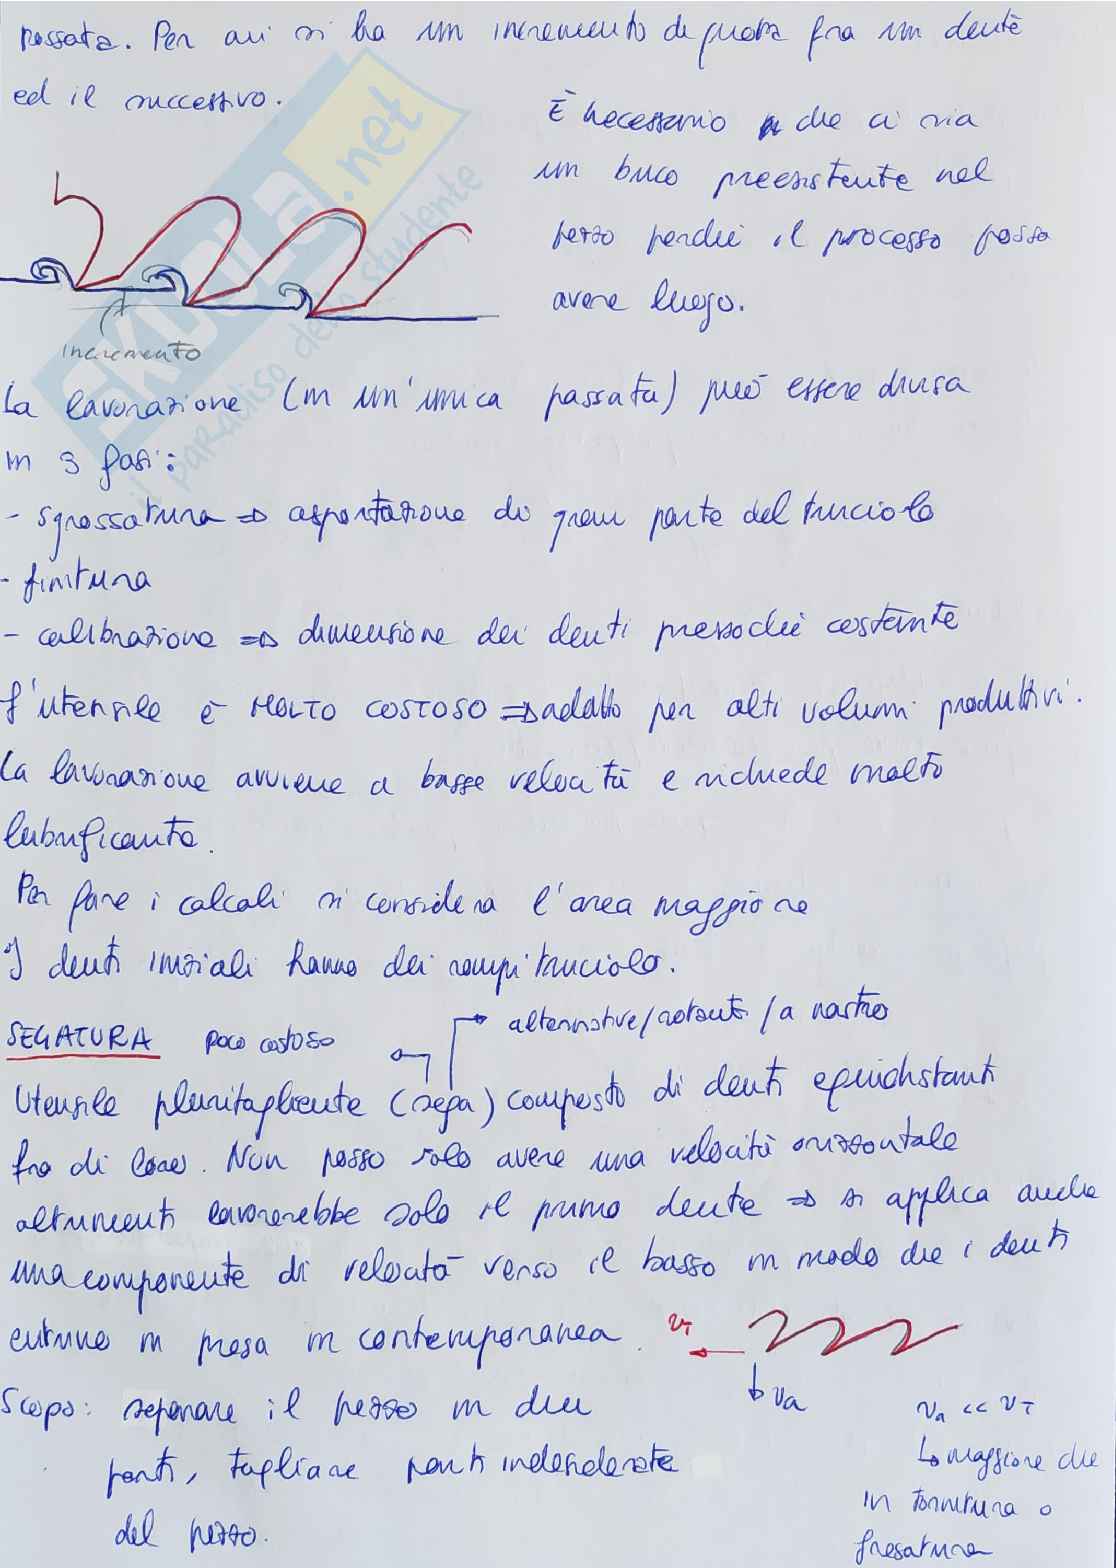 passata. Per cui si ha un incremento di quota fra un dente
ed il successivo.
È necessario che ci sia
un buco preesistente nel
pezzo perché il processo possa
avere luogo.
incremento
La lavorazione (in un'unica passata) può essere divisa
in 3 fasi:
- sgrossatura => asportazione di gran parte del truciolo
- finitura
- calibrazione => dimensione dei denti pressoché costante
L'utensile è MOLTO COSTOSO => adatto per alti volumi produttivi.
La lavorazione avviene a basse velocità e richiede molto
lubrificante.
Per fare i calcoli si considera l'area maggiore
I denti iniziali hanno dei rompitruciolo.
SEGATURA poco costoso
alternative/rotanti/a nastro
Utensile pluritagliente (sega) composto di denti equidistanti
fra di loro. Non posso solo avere una velocità orizzontale
altrimenti lavorerebbe solo il primo dente => si applica anche
una componente di velocità verso il basso in modo che i denti
entrino in presa in contemporanea.
vT
va
Scopo: separare il pezzo in due
parti, tagliare parti indesiderate
del pezzo.
va << vT
↳ maggiore che
in tornitura o
fresatura
SKUOLA.net
il paradiso dello studente